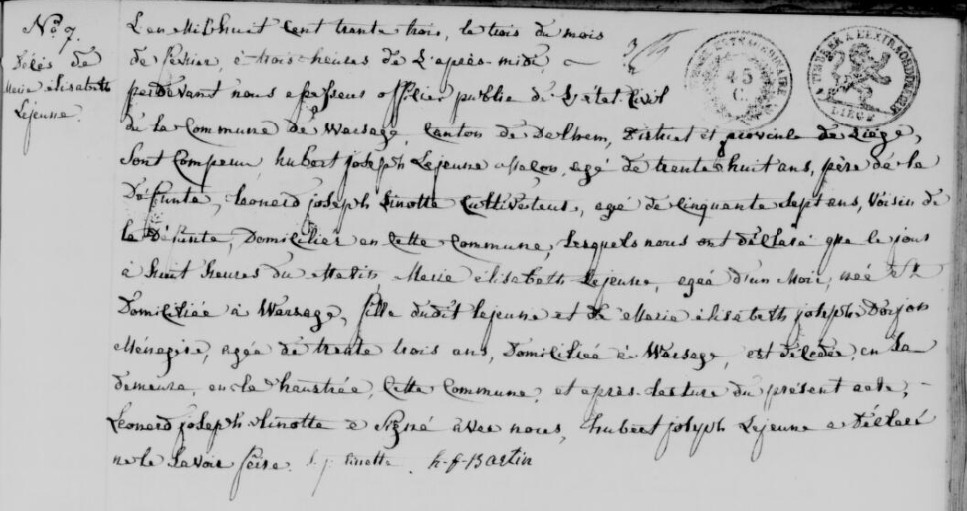 No. 7.
Décès de
Marie élisabeth
Lejeune.
L'an Mil huit Cent trente trois, le trois du mois
de Février, à trois heures de L'après-midi,
pardevant nous officier public de L'état Civil
de la Commune de Warsage, Canton de Dalhem, District et province de Liège,
Sont Comparu hubert joseph Lejeune Maçon, agé de trente huit ans, père de la
Défunte, Léonard joseph Linotte Cultivateur, agé de Cinquante Sept ans, Voisin de
la Défunte, Domiciliés en Cette Commune, lesquels nous ont déclaré que le jour
à huit heures du Matin, Marie élisabeth Lejeune, agée d'un Mois, née et
Domiciliée à Warsage, fille dudit lejeune et de Marie élisabeth joseph Dorjon
Ménagère, agée de trente trois ans, Domiciliée à Warsage, est décédée, en La
demeure, en la Cette Commune, et après lecture du présent acte,
Léonard joseph Linotte a Signé avec nous, hubert joseph Lejeune a Déclaré
ne le Savoir faire. l. j. linotte. h-f-Bastin
45
C.
TIMBRE EXTRAORDINAIRE
TIMBRE A L'EXTRAORDINAIRE
LIEGE